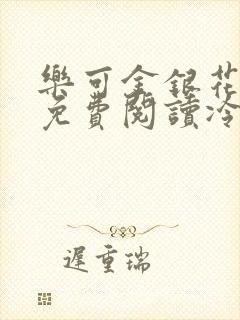 樂可金銀花
免費閱讀冷
遲重瑞